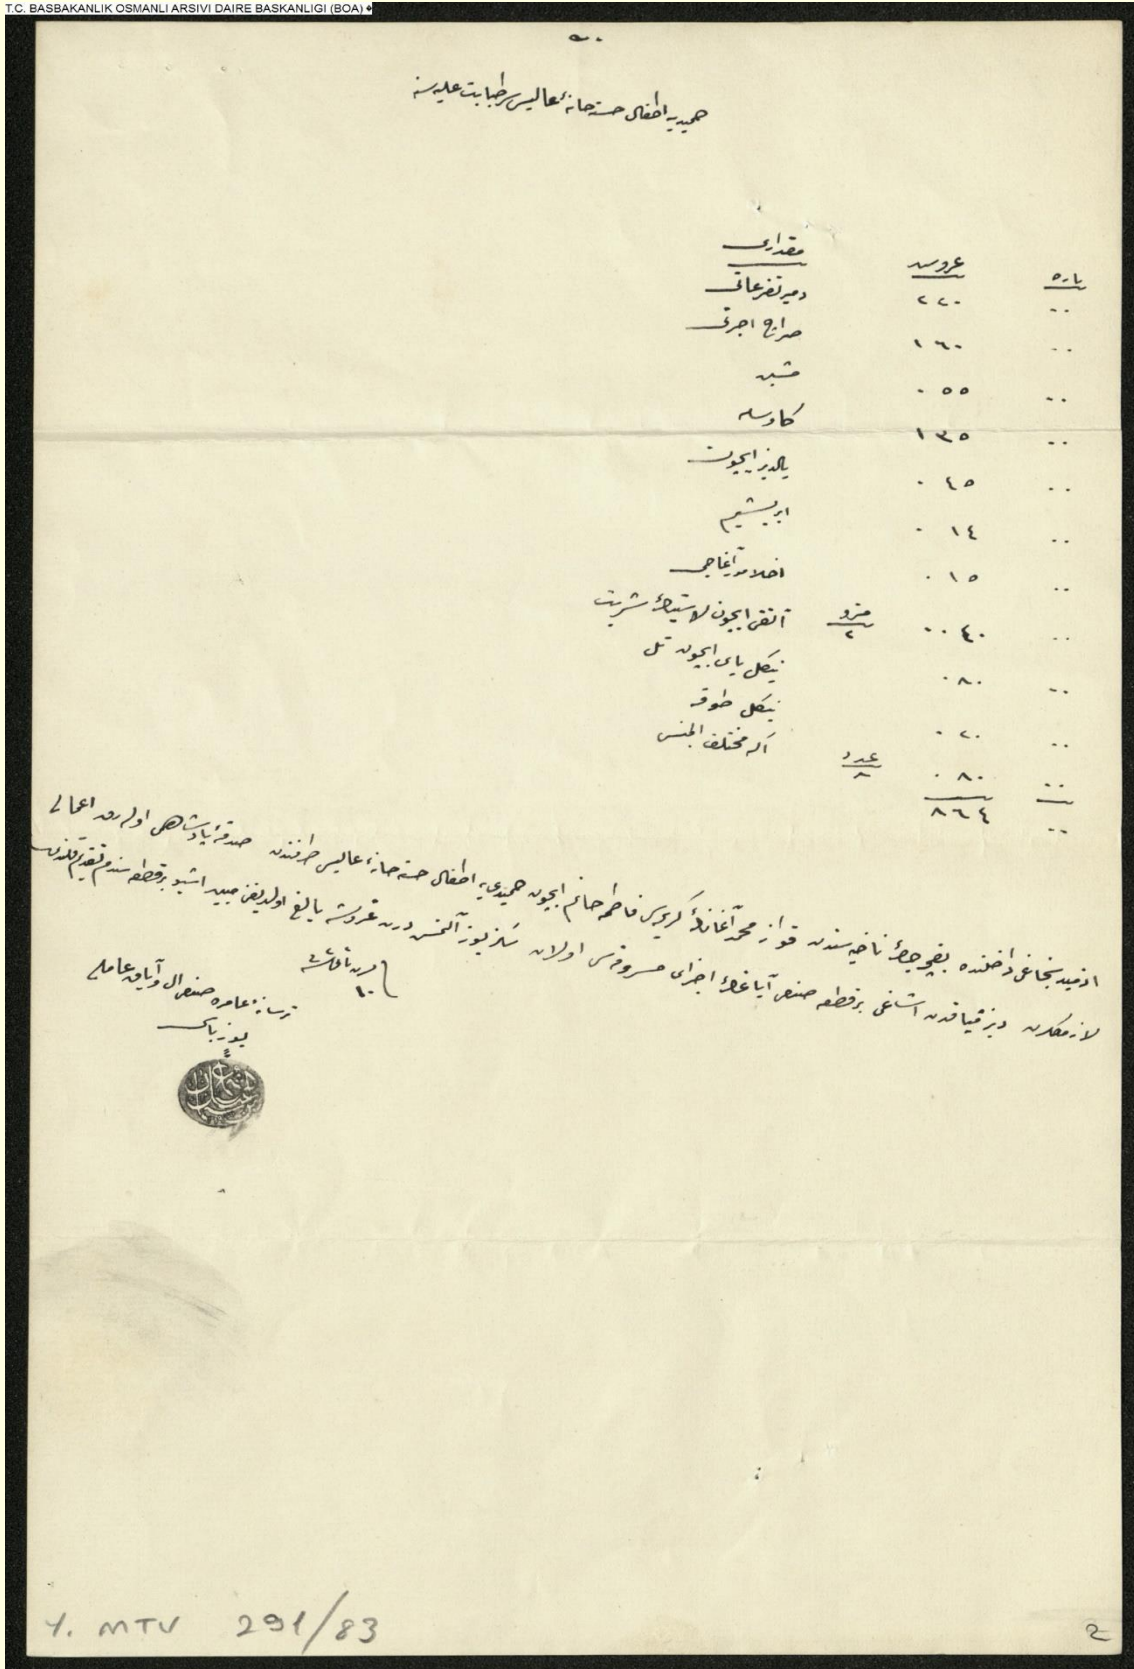 T.C. BASBAKANLIK OSMANLI ARSIVI DAIRE BASKANLIGI (BOA) �
حميديه اطفال خسته خانهٔ عاليسى سرطبابت عليه سنه
پاره غروش مقدارى
٠٠ ٢٢٠ دمير تفرعاتى
٠٠ ١٦٠ سراج اجرتى
٠٠ ٠٥٥ مشين
٠٠ ١٣٥ كاوسله
٠٠ ٠٤٥ يالديز ايچون
٠٠ ٠١٤ ابريشيم
٠٠ ٠١٥ اخلامور آغاجى
٠٠ ٠٠٤٠ مترو ٢ آتقى ايچون لاستيك شريت
٠٠ ٠٨٠ نيكل ياى ايچون تل
٠٠ ٠٢٠ نيكل طوقه
٠٠ ٠٨٠ عدد ٨ اكه مختلف الجنس
٠٠ ٨٦٤
ازميد سنجاغى داخلنده باغچه جك ناحيه سندن محمد آغانك كريمه سى فاطمه خانم ايچون حميديه اطفال خسته خانهٔ عاليسى طرفندن صدقهٔ پادشاهى اوله رق اعمالى
لازمكلن ديز قپاقدن اشاغى بر قطعه صنعى آياغك اجزاى مصروفى اولان سكز يوز آلتمش درت غروشه بالغ اولديغنى مبين اشبو بر قطعه سندم تقديم قلندى
ترسانهٔ عامره صنعى ال و آياق عاملى
يوزباشى
Y. MTV 291/83
2